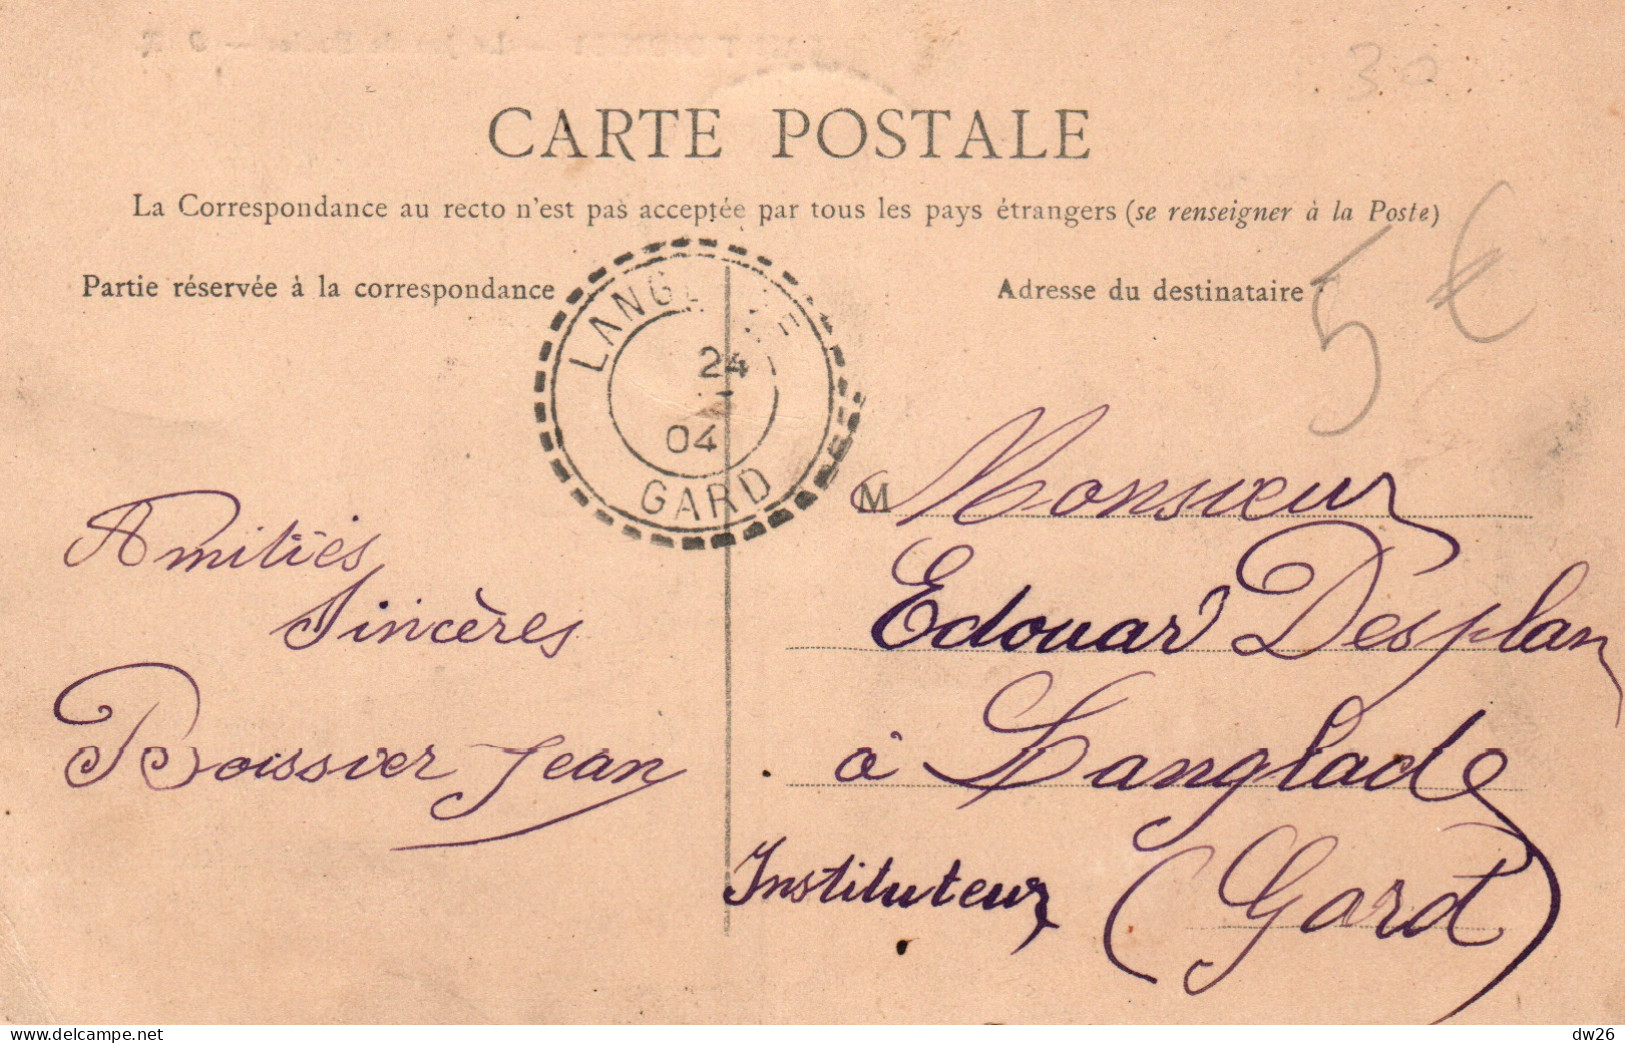 30
CARTE POSTALE
La Correspondance au recto n'est pas acceptée par tous les pays étrangers (se renseigner à la Poste)
Partie réservée à la correspondance
Adresse du destinataire
5€
24
04
GARD
M Monsieur
Edouard Desplan
à Langlade
Instituteur (Gard)
Amitiés
Sincères
Boissier Jean
https://www.delcampe.net
dw26